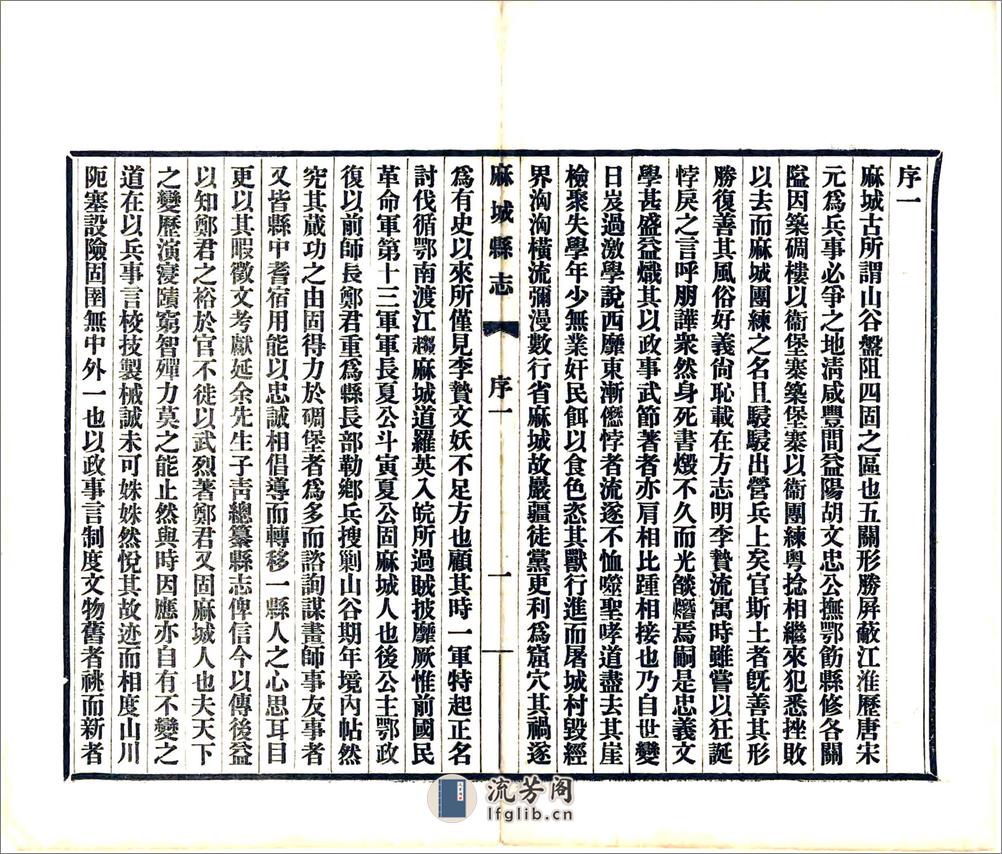 序一
麻城古所謂山谷盤阻四固之區也五關形勝屏蔽江淮歷唐宋
元爲兵事必爭之地淸咸豐間益陽胡文忠公撫鄂飭縣修各關
隘因築碉樓以衞堡寨築堡寨以衞團練粵捻相繼來犯悉挫敗
以去而麻城團練之名且駸駸出營兵上矣官斯土者旣善其形
勝復善其風俗好義尙恥載在方志明李贄流寓時雖嘗以狂誕
悖戾之言呼朋譁衆然身死書燬不久而光燄熸焉嗣是忠義文
學甚盛益熾其以政事武節著者亦肩相比踵相接也乃自世變
日岌過激學說西靡東漸僭悖者流遂不恤噬聖哮道盡去其崖
檢聚失學年少無業奸民餌以食色恣其獸行進而屠城村毀經
界洶洶橫流彌漫數行省麻城故嚴疆徒黨更利爲窟穴其禍遂
麻城縣志 序一 一
爲有史以來所僅見李贄文妖不足方也顧其時一軍特起正名
討伐循鄂南渡江趨麻城道羅英入皖所過賊披靡厥惟前國民
革命軍第十三軍軍長夏公斗寅夏公固麻城人也後公主鄂政
復以前師長鄭君重爲縣長部勒鄉兵搜剿山谷期年境內帖然
究其蕆功之由固得力於碉堡者爲多而諮詢謀畫師事友事者
又皆縣中耆宿用能以忠誠相倡導而轉移一縣人之心思耳目
更以其暇徵文考獻延余先生子靑總纂縣志俾信今以傳後益
以知鄭君之裕於官不徒以武烈著鄭君又固麻城人也夫天下
之變歷演寖蹟窮智殫力莫之能止然與時因應亦自有不變之
道在以兵事言校技製械誠未可姝姝然悅其故迹而相度山川
阨塞設險固圉無中外一也以政事言制度文物舊者祧而新者
流芳阁
lfglib.cn